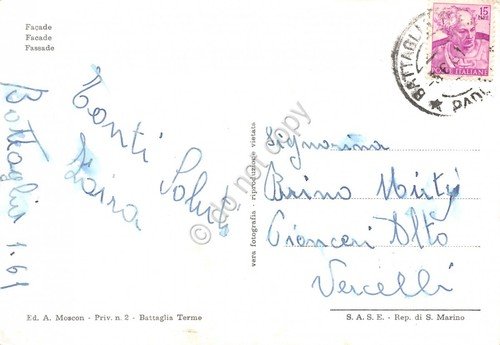 Façade
Facade
Fassade
Tanti Saluti
Zaira
Battaglia 1.61
vera fotografia riproduzione vietata
Ed. A. Moscon - Priv. n. 2 - Battaglia Terme
15
POSTE ITALIANE
BATTAGLI
PADO
Signorina
Brino
Cianceri Alto
Vercelli
S. A. S. E. - Rep. di S. Marino
do not copy